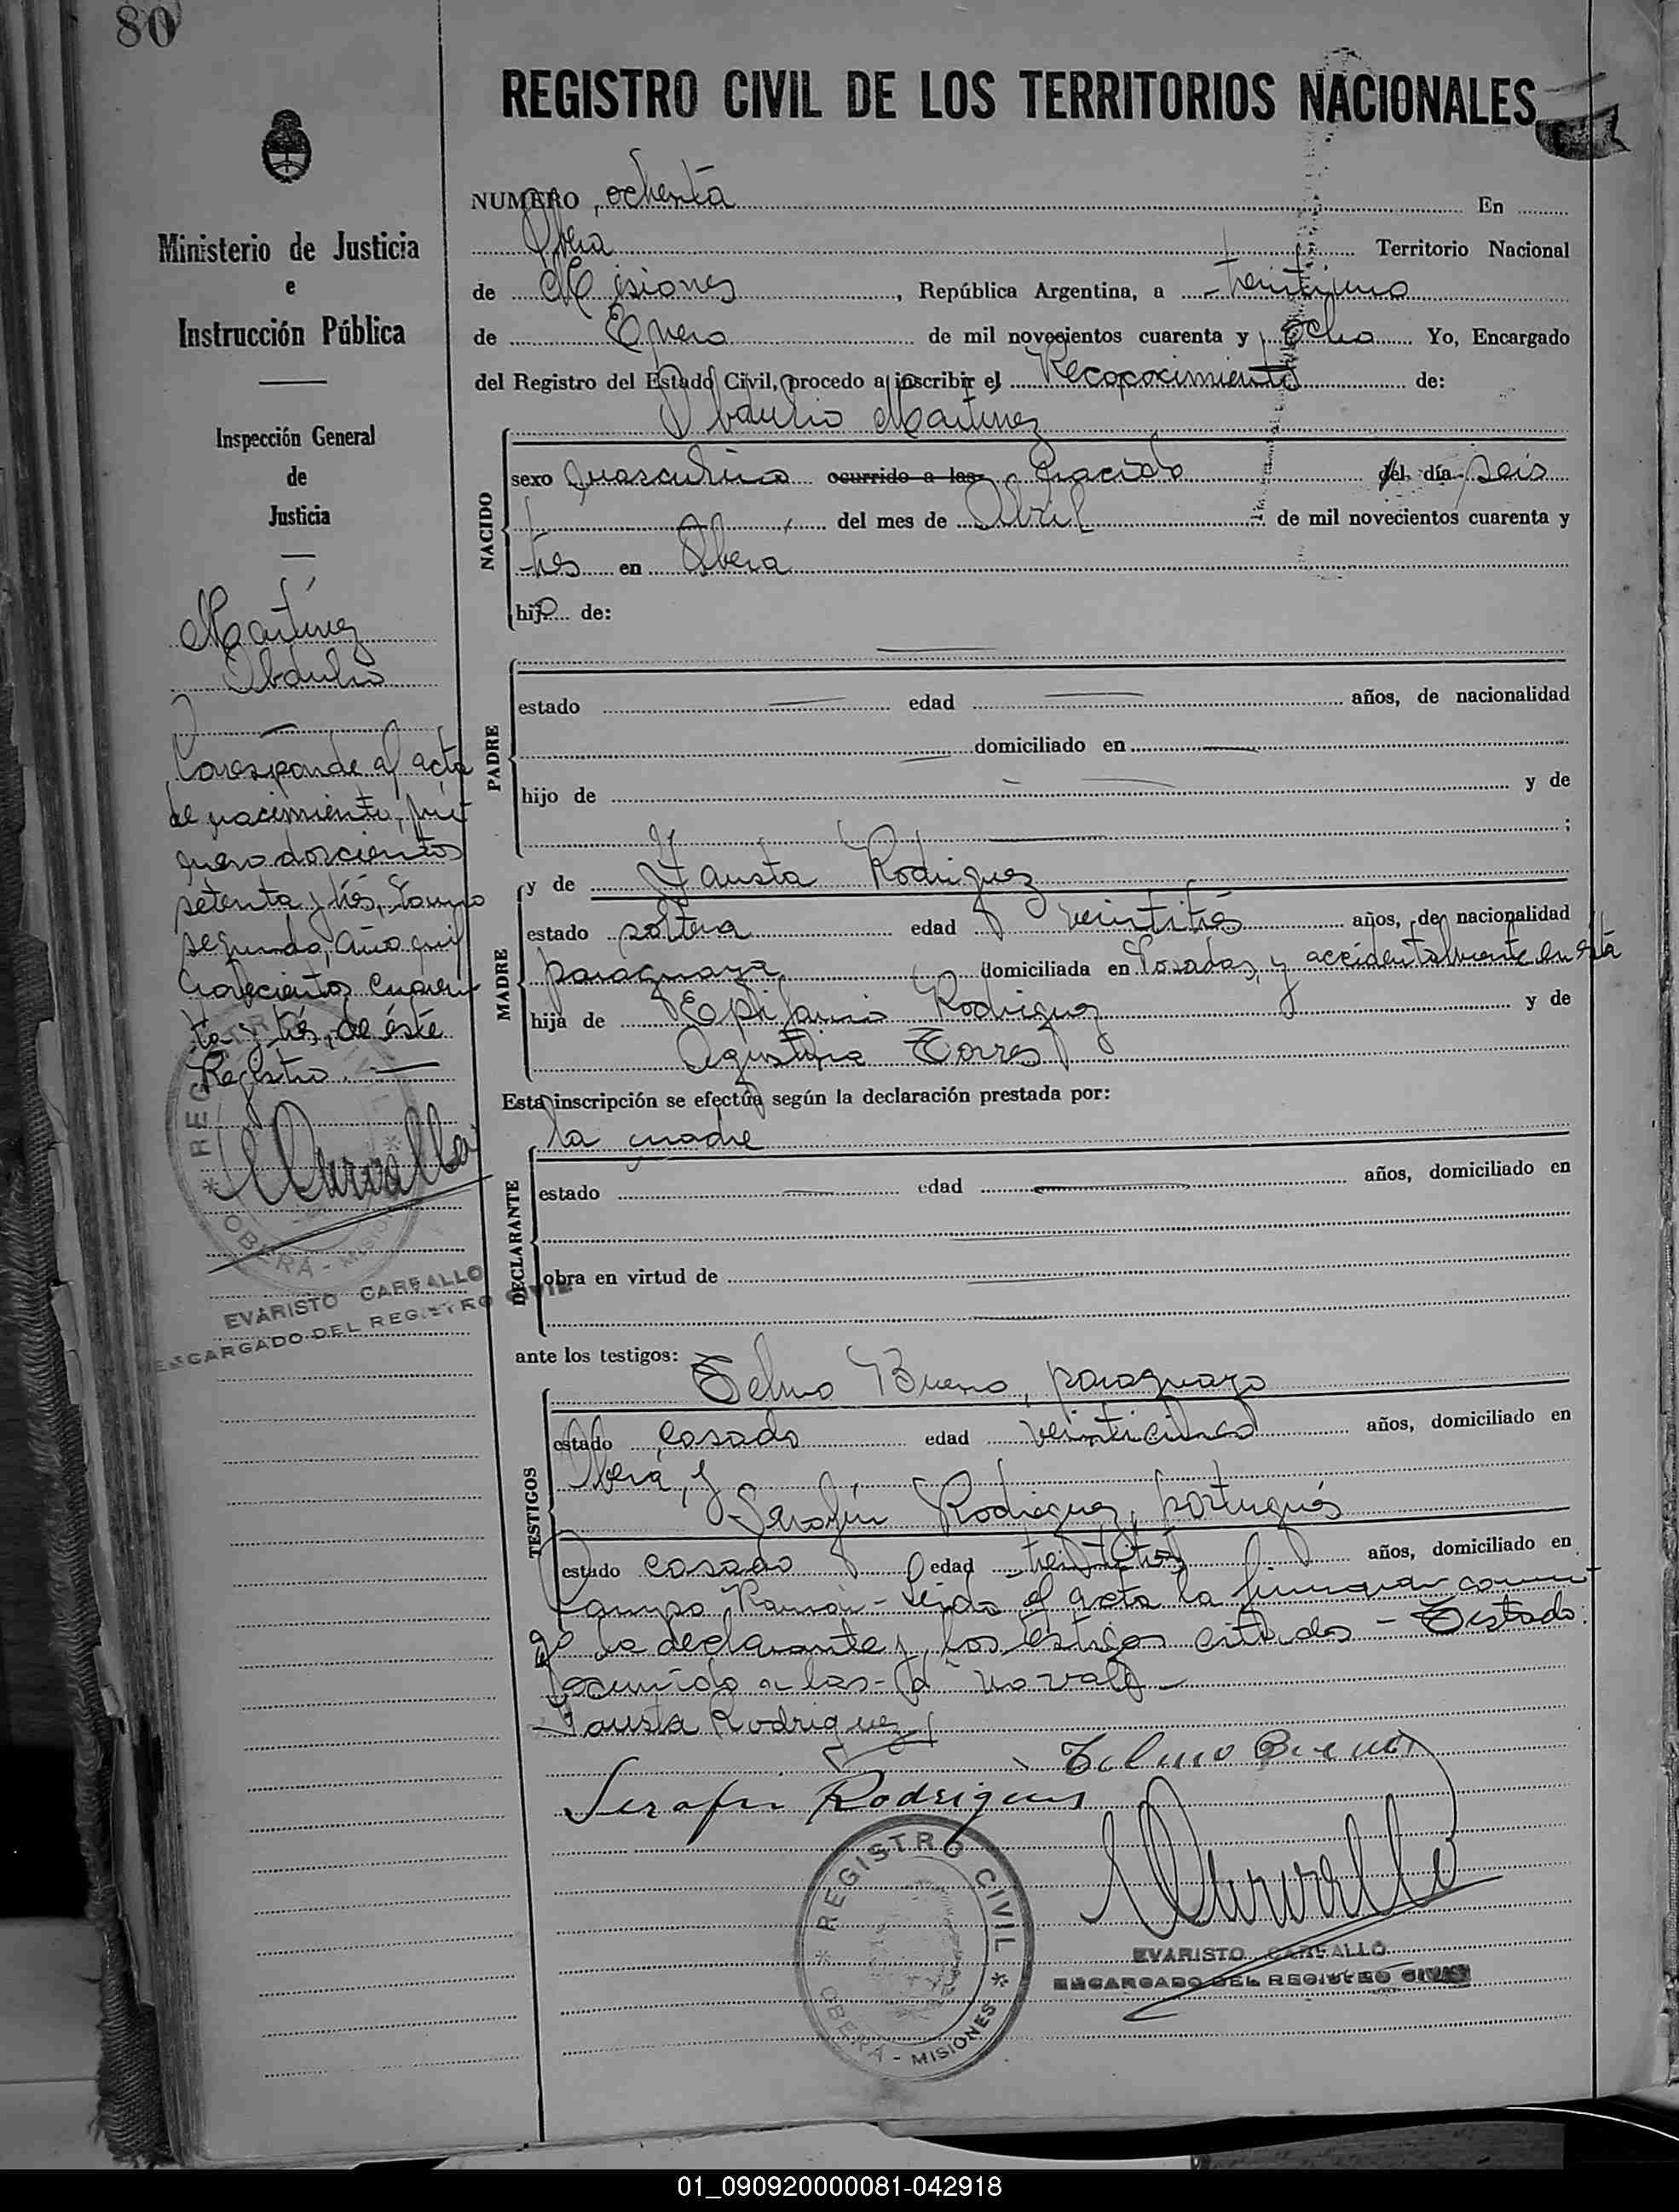 80
REGISTRO CIVIL DE LOS TERRITORIOS NACIONALES
Ministerio de Justicia
e
Instrucción Pública
Inspección General
de
Justicia
Martínez
Obdulio
Corresponde al acta
de nacimiento, nú-
mero doscientos
setenta y trés, tomo
segundo, año mil
novecientos cuaren-
ta y trés, de éste
Registro.
REGISTRO CIVIL
OBERÁ - MISIONES
EVARISTO CARBALLO
ENCARGADO DEL REGISTRO CIVIL
NUMERO ochenta En
Oberá Territorio Nacional
de Misiones, República Argentina, a treintiuno
de Enero de mil novecientos cuarenta y ocho Yo, Encargado
del Registro del Estado Civil, procedo a inscribir el Reconocimiento de:
Obdulio Martinez
NACIDO
sexo masculino ocurrido a las nacido del día seis
del mes de Abril de mil novecientos cuarenta y
tres en Oberá
hijo de:
PADRE
estado edad años, de nacionalidad
domiciliado en
hijo de y de
;
MADRE
y de Fausta Rodriguez
estado soltera edad veintitrés años, de nacionalidad
paraguaya domiciliada en Posadas, y accidentalmente en ésta
hija de Epifanio Rodriguez y de
Agustina Torres
Esta inscripción se efectúa según la declaración prestada por:
DECLARANTE
la madre
estado edad años, domiciliado en
obra en virtud de
ante los testigos:
TESTIGOS
Telmo Bueno, paraguayo
estado casado edad veinticinco años, domiciliado en
Oberá, y
Serafín Rodriguez, portugués
estado casado edad treintitrés años, domiciliado en
Campo Ramón - Leída el acta la firmaron conmi-
go la declarante y los testigos citados - Testado:
ocurrido a las - d no vale
Fausta Rodriguez
Telmo Bueno
Serafin Rodrigues
REGISTRO CIVIL
OBERÁ - MISIONES
EVARISTO CARBALLO
ENCARGADO DEL REGISTRO CIVIL
01_090920000081-042918